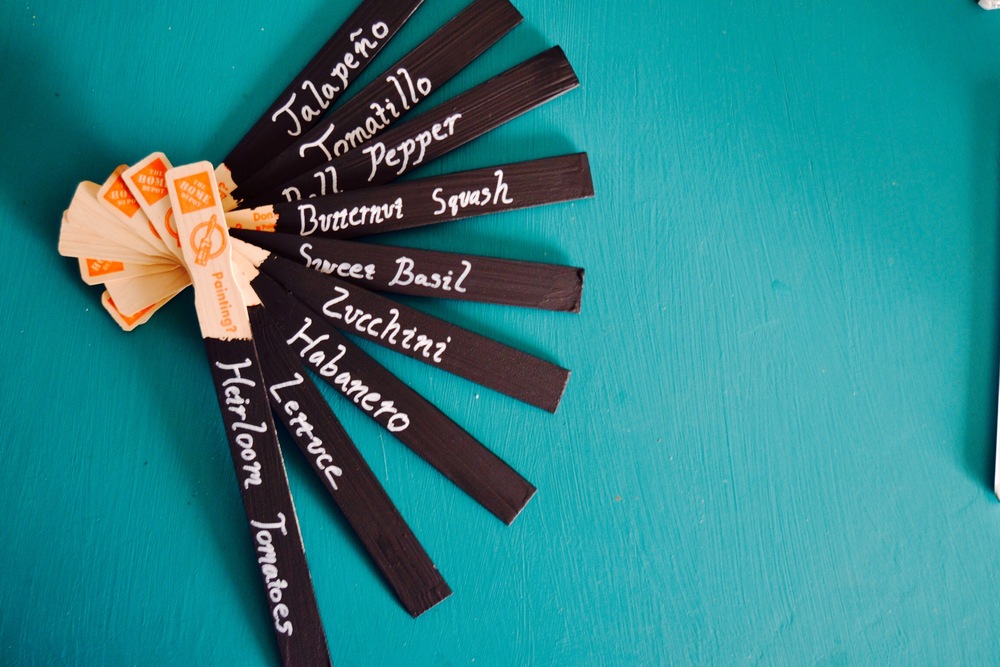 Jalapeño
Tomatillo
Bell Pepper
Butternut Squash
Sweet Basil
Zucchini
Habanero
Lettuce
Heirloom Tomatoes
THE
HOME
DEPOT
Painting?
THE
HOME
DEPOT
Don